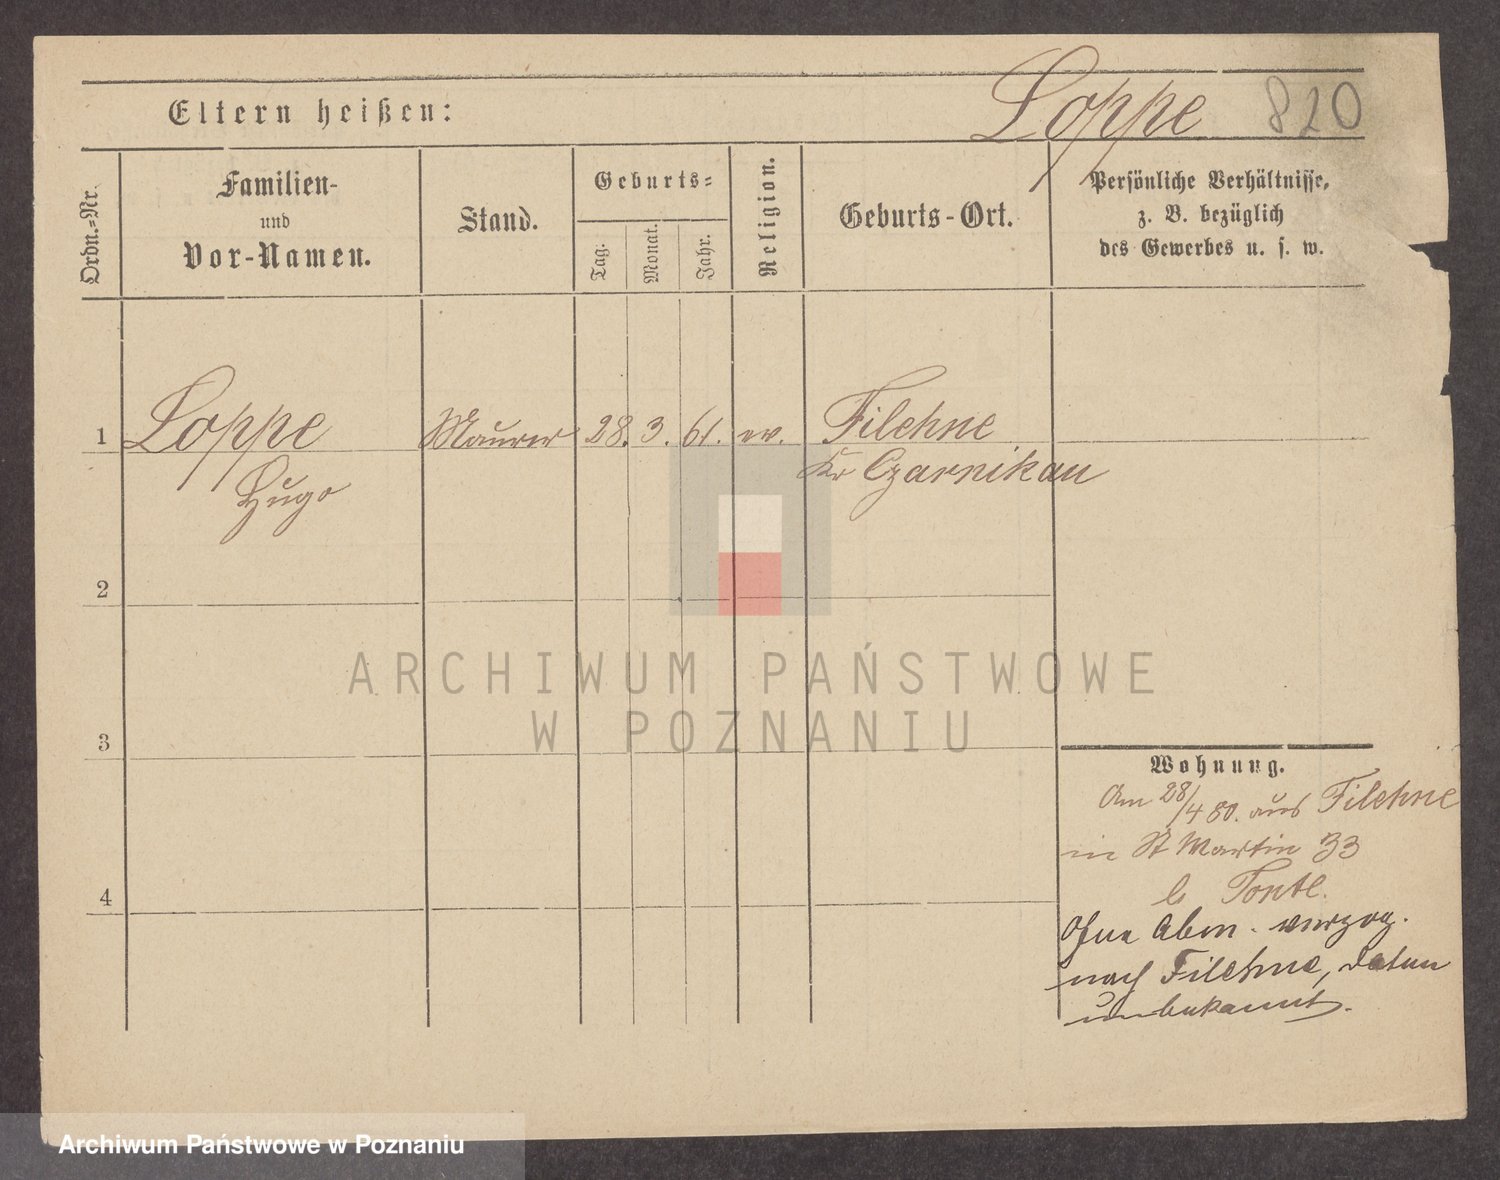 Eltern heißen:
Loppe
820
Ordn.=Nr.
Familien-
und
Vor-Namen.
Stand.
Geburts=
Tag.
Monat.
Jahr.
Religion.
Geburts-Ort.
Persönliche Verhältnisse,
z. B. bezüglich
des Gewerbes u. s. w.
1 Loppe Maurer 28. 3. 61. ev. Filehne
Hugo Kr Czarnikau
2
3
4
Wohnung.
Am 28/4 80. aus Filehne
in St Martin 33
b
Ohne Abm. verzog.
nach Filehne, Datum
unbekannt.
ARCHIWUM PAŃSTWOWE
W POZNANIU
Archiwum Państwowe w Poznaniu